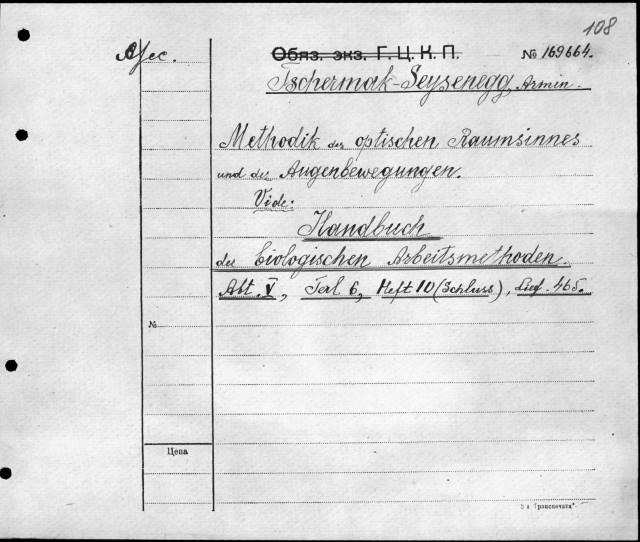 108
Обяз. экз. Г. Ц. К. П. № 169664.
Tschermak-Seysenegg, Armin.
Methodik der optischen Raumsinnes
und der Augenbewegungen.
Vide:
Handbuch
der biologischen Arbeitsmethoden.
Abt. V, Teil 6, Heft 10 (Schluss), Lief. 465.
№
Цена
3-я „Транспечать“.